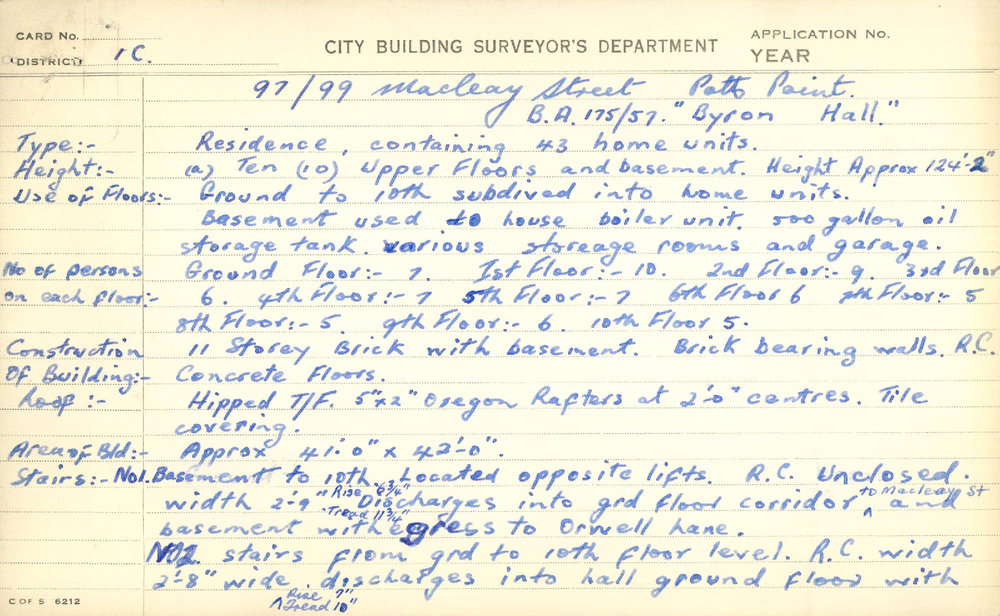 CARD No.
DISTRICT 1C.
CITY BUILDING SURVEYOR'S DEPARTMENT
APPLICATION No.
YEAR
97/99 Macleay Street Potts Point.
B.A. 175/57. "Byron Hall."
Type:- Residence, containing 43 home units.
Height:- (a) Ten (10) Upper Floors and basement. Height Approx 124'-2"
Use of Floors:- Ground to 10th subdived into home units.
Basement used to house boiler unit. 500 gallon oil
storage tank. various storeage rooms and garage.
No of persons Ground Floor:- 7. 1st Floor:- 10. 2nd Floor:- 9. 3rd Floor
on each floor:- 6. 4th Floor:- 7 5th Floor:- 7 6th Floor 6 7th Floor:- 5
8th Floor:- 5. 9th Floor:- 6. 10th Floor 5.
Construction 11 Storey Brick with basement. Brick bearing walls. R.C.
Of Building:- Concrete Floors.
Roof:- Hipped T/F. 5"x2" Oregon Rafters at 2'-0" centres. Tile
covering.
Area of Bld:- Approx 41'.0" x 42'-0".
Stairs:- No1. Basement to 10th. Located opposite lifts. R.C. Unclosed.
width 2'-9" Rise 6 3/4" Tread 11 3/4" Discharges into grd floor corridor to Macleay St and
basement with egress to Orwell Lane.
No2. stairs from grd to 10th floor level. R.C. width
2'-8" wide. discharges into hall ground floor with
Rise 7"
Tread 10"
C OF S 6212